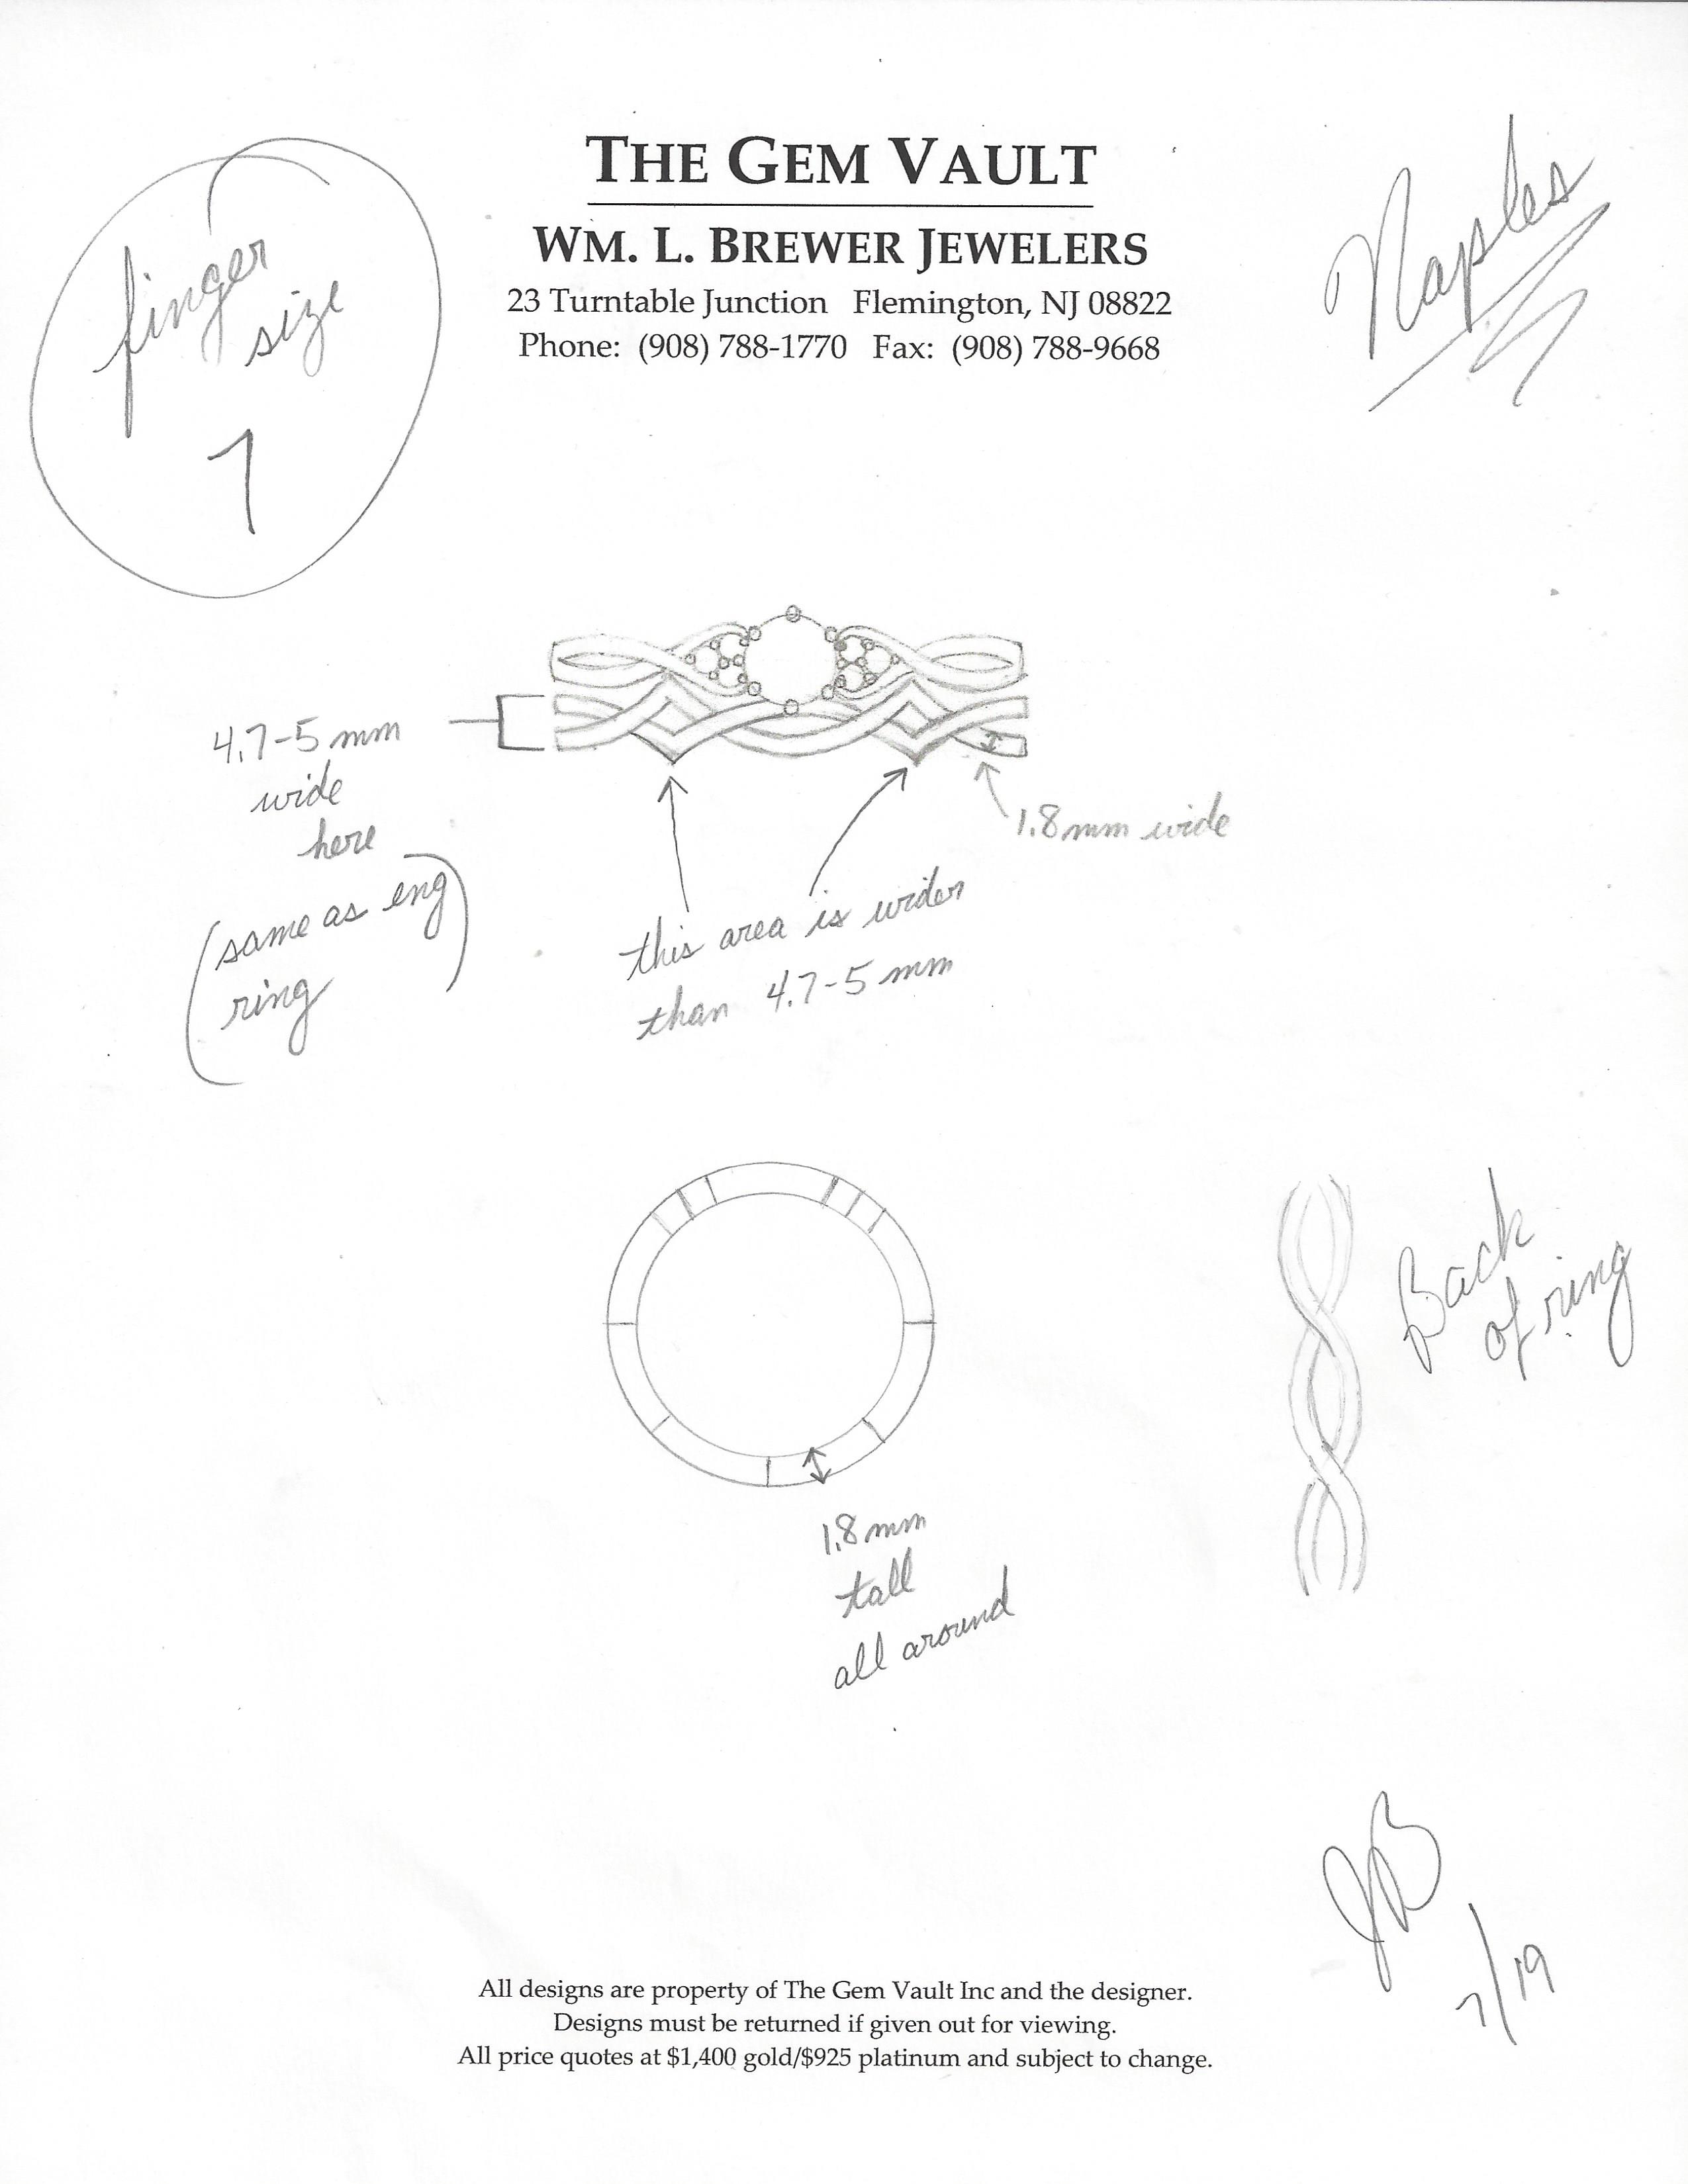 THE GEM VAULT
WM. L. BREWER JEWELERS
23 Turntable Junction Flemington, NJ 08822
Phone: (908) 788-1770 Fax: (908) 788-9668
finger
size
7
Naples
4.7-5 mm
wide
here
(same as eng
ring)
1.8mm wide
this area is wider
than 4.7-5 mm
Back
of ring
1.8 mm
tall
all around
JB
7/19
All designs are property of The Gem Vault Inc and the designer.
Designs must be returned if given out for viewing.
All price quotes at $1,400 gold/$925 platinum and subject to change.